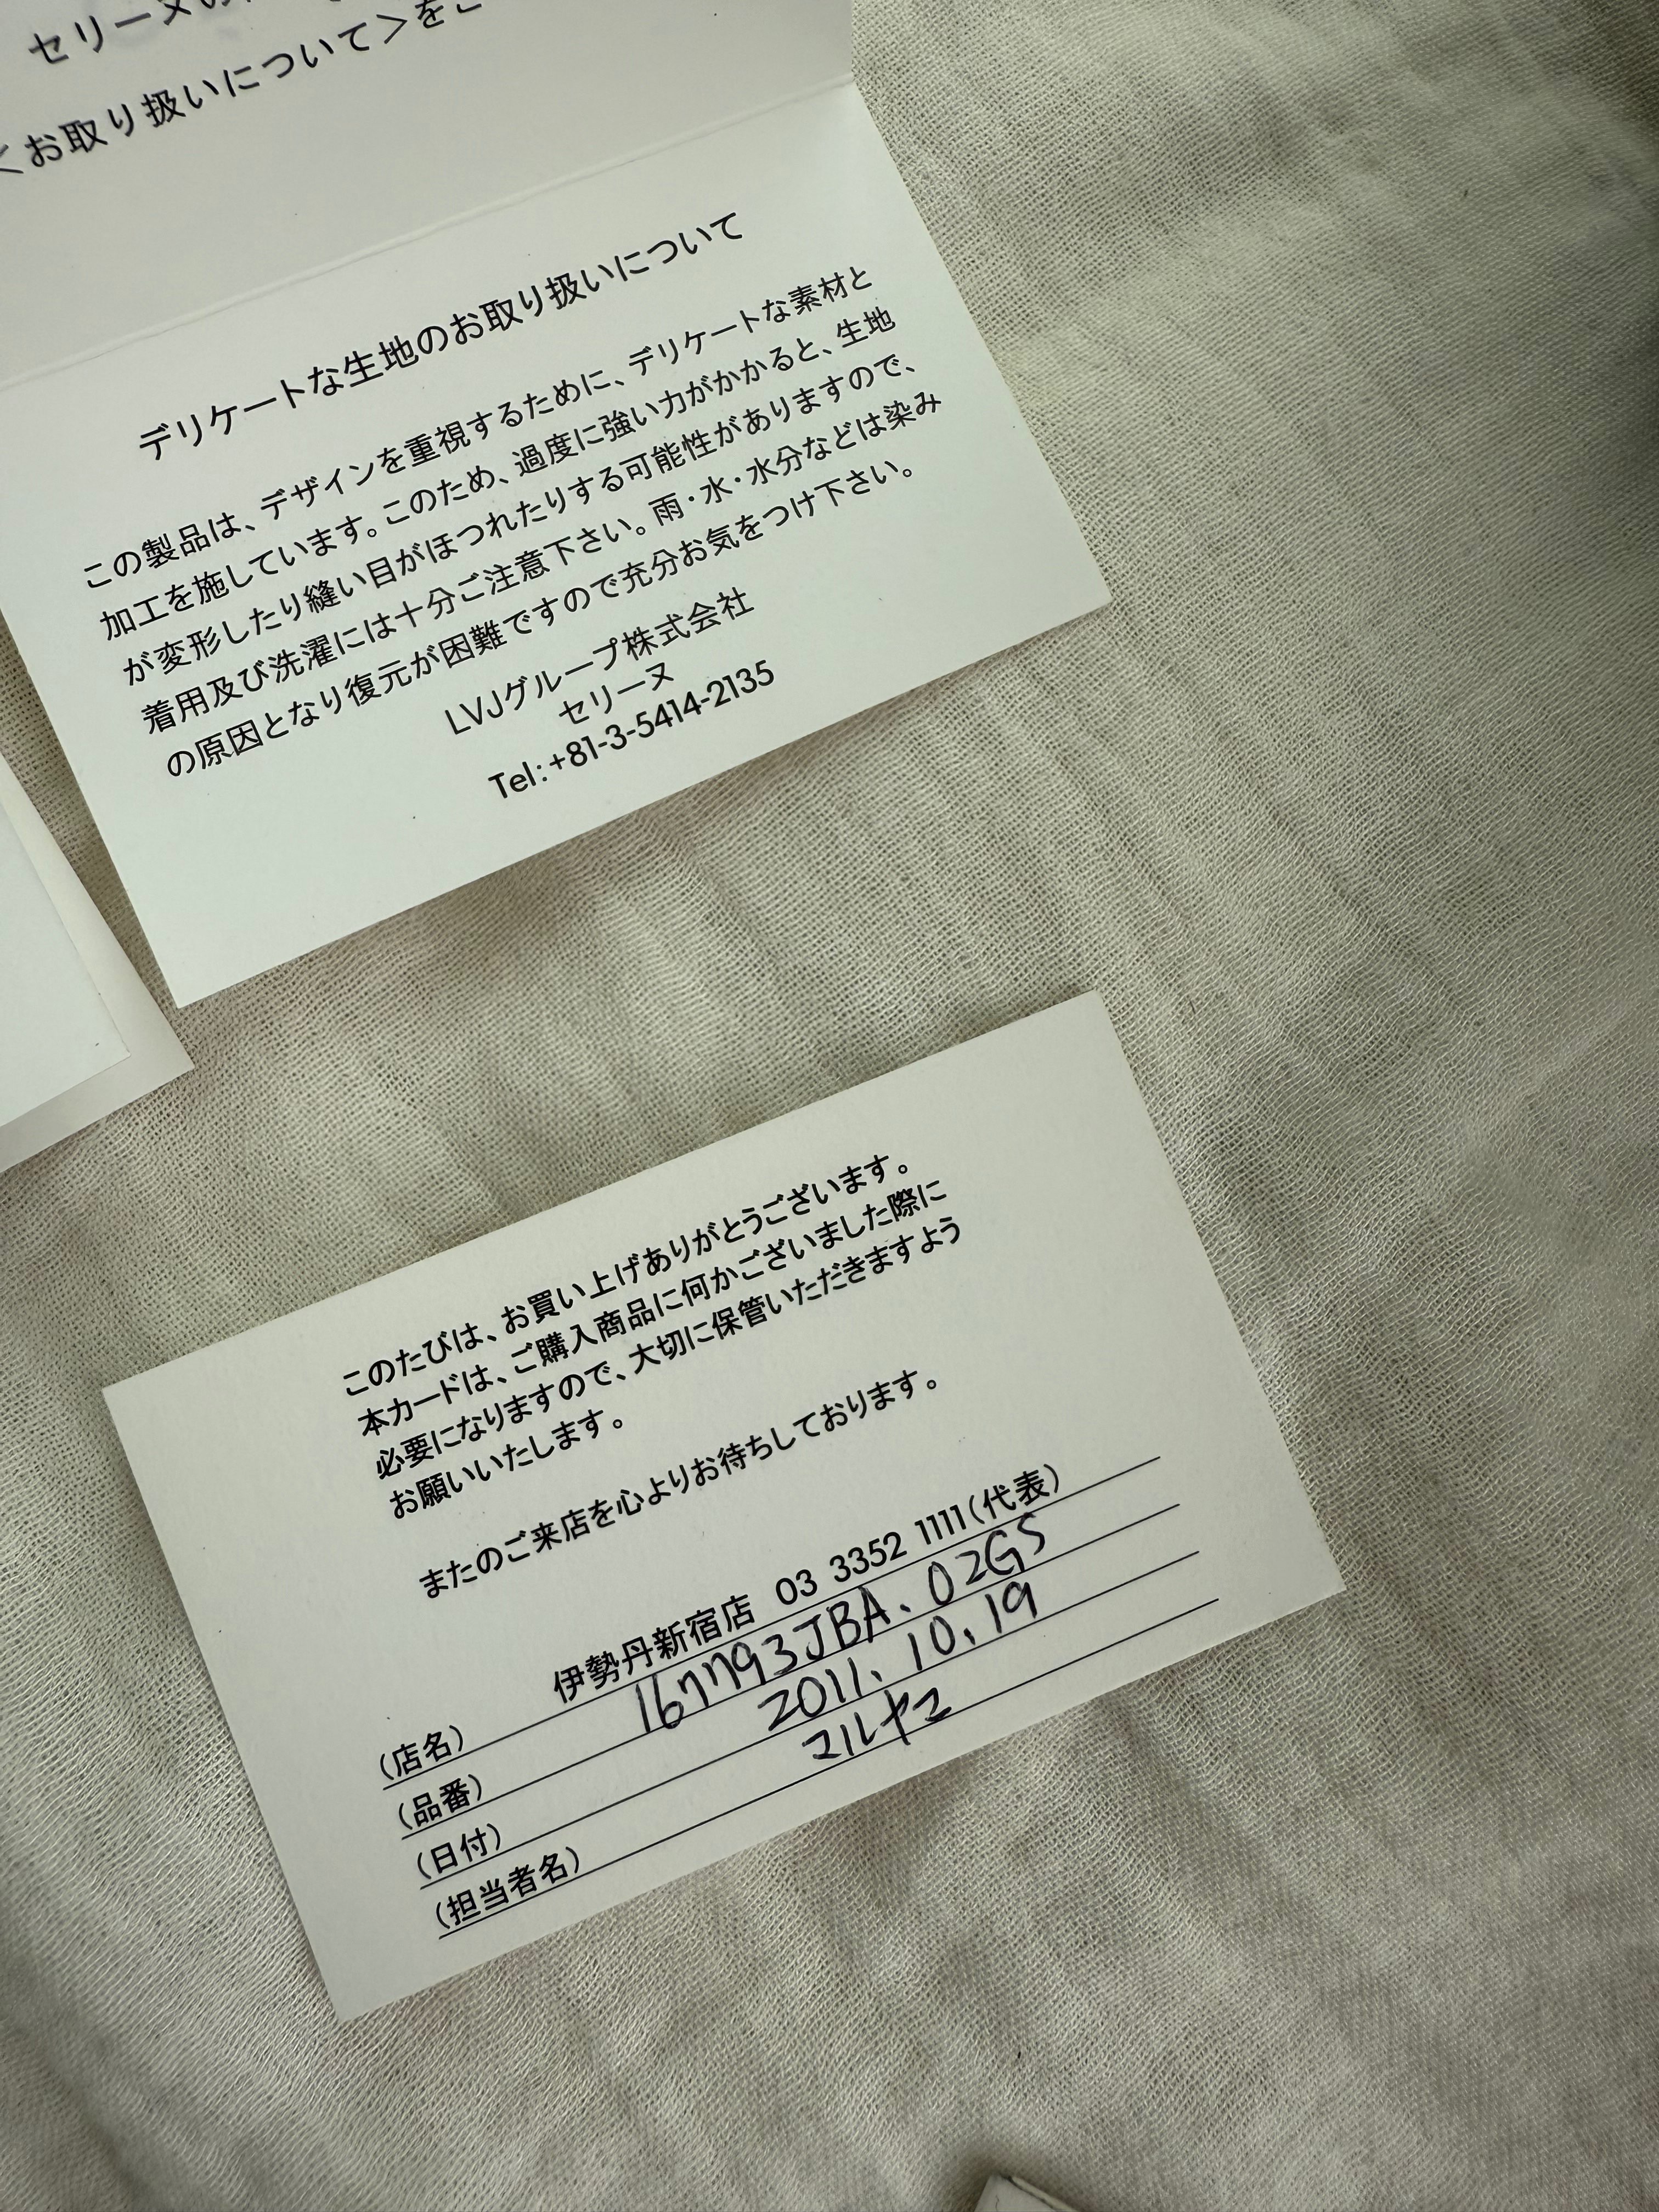 セリーヌの
<お取り扱いについて>をご
デリケートな生地のお取り扱いについて
この製品は、デザインを重視するために、デリケートな素材と
加工を施しています。このため、過度に強い力がかかると、生地
が変形したり縫い目がほつれたりする可能性がありますので、
着用及び洗濯には十分ご注意下さい。雨・水・水分などは染み
の原因となり復元が困難ですので充分お気をつけ下さい。
LVJグループ株式会社
セリーヌ
Tel:+81-3-5414-2135
このたびは、お買い上げありがとうございます。
本カードは、ご購入商品に何かございました際に
必要になりますので、大切に保管いただきますよう
お願いいたします。
またのご来店を心よりお待ちしております。
(店名) 伊勢丹新宿店 03 3352 1111(代表)
(品番) 167793JBA. 02GS
(日付) 2011. 10. 19
(担当者名) マルヤマ